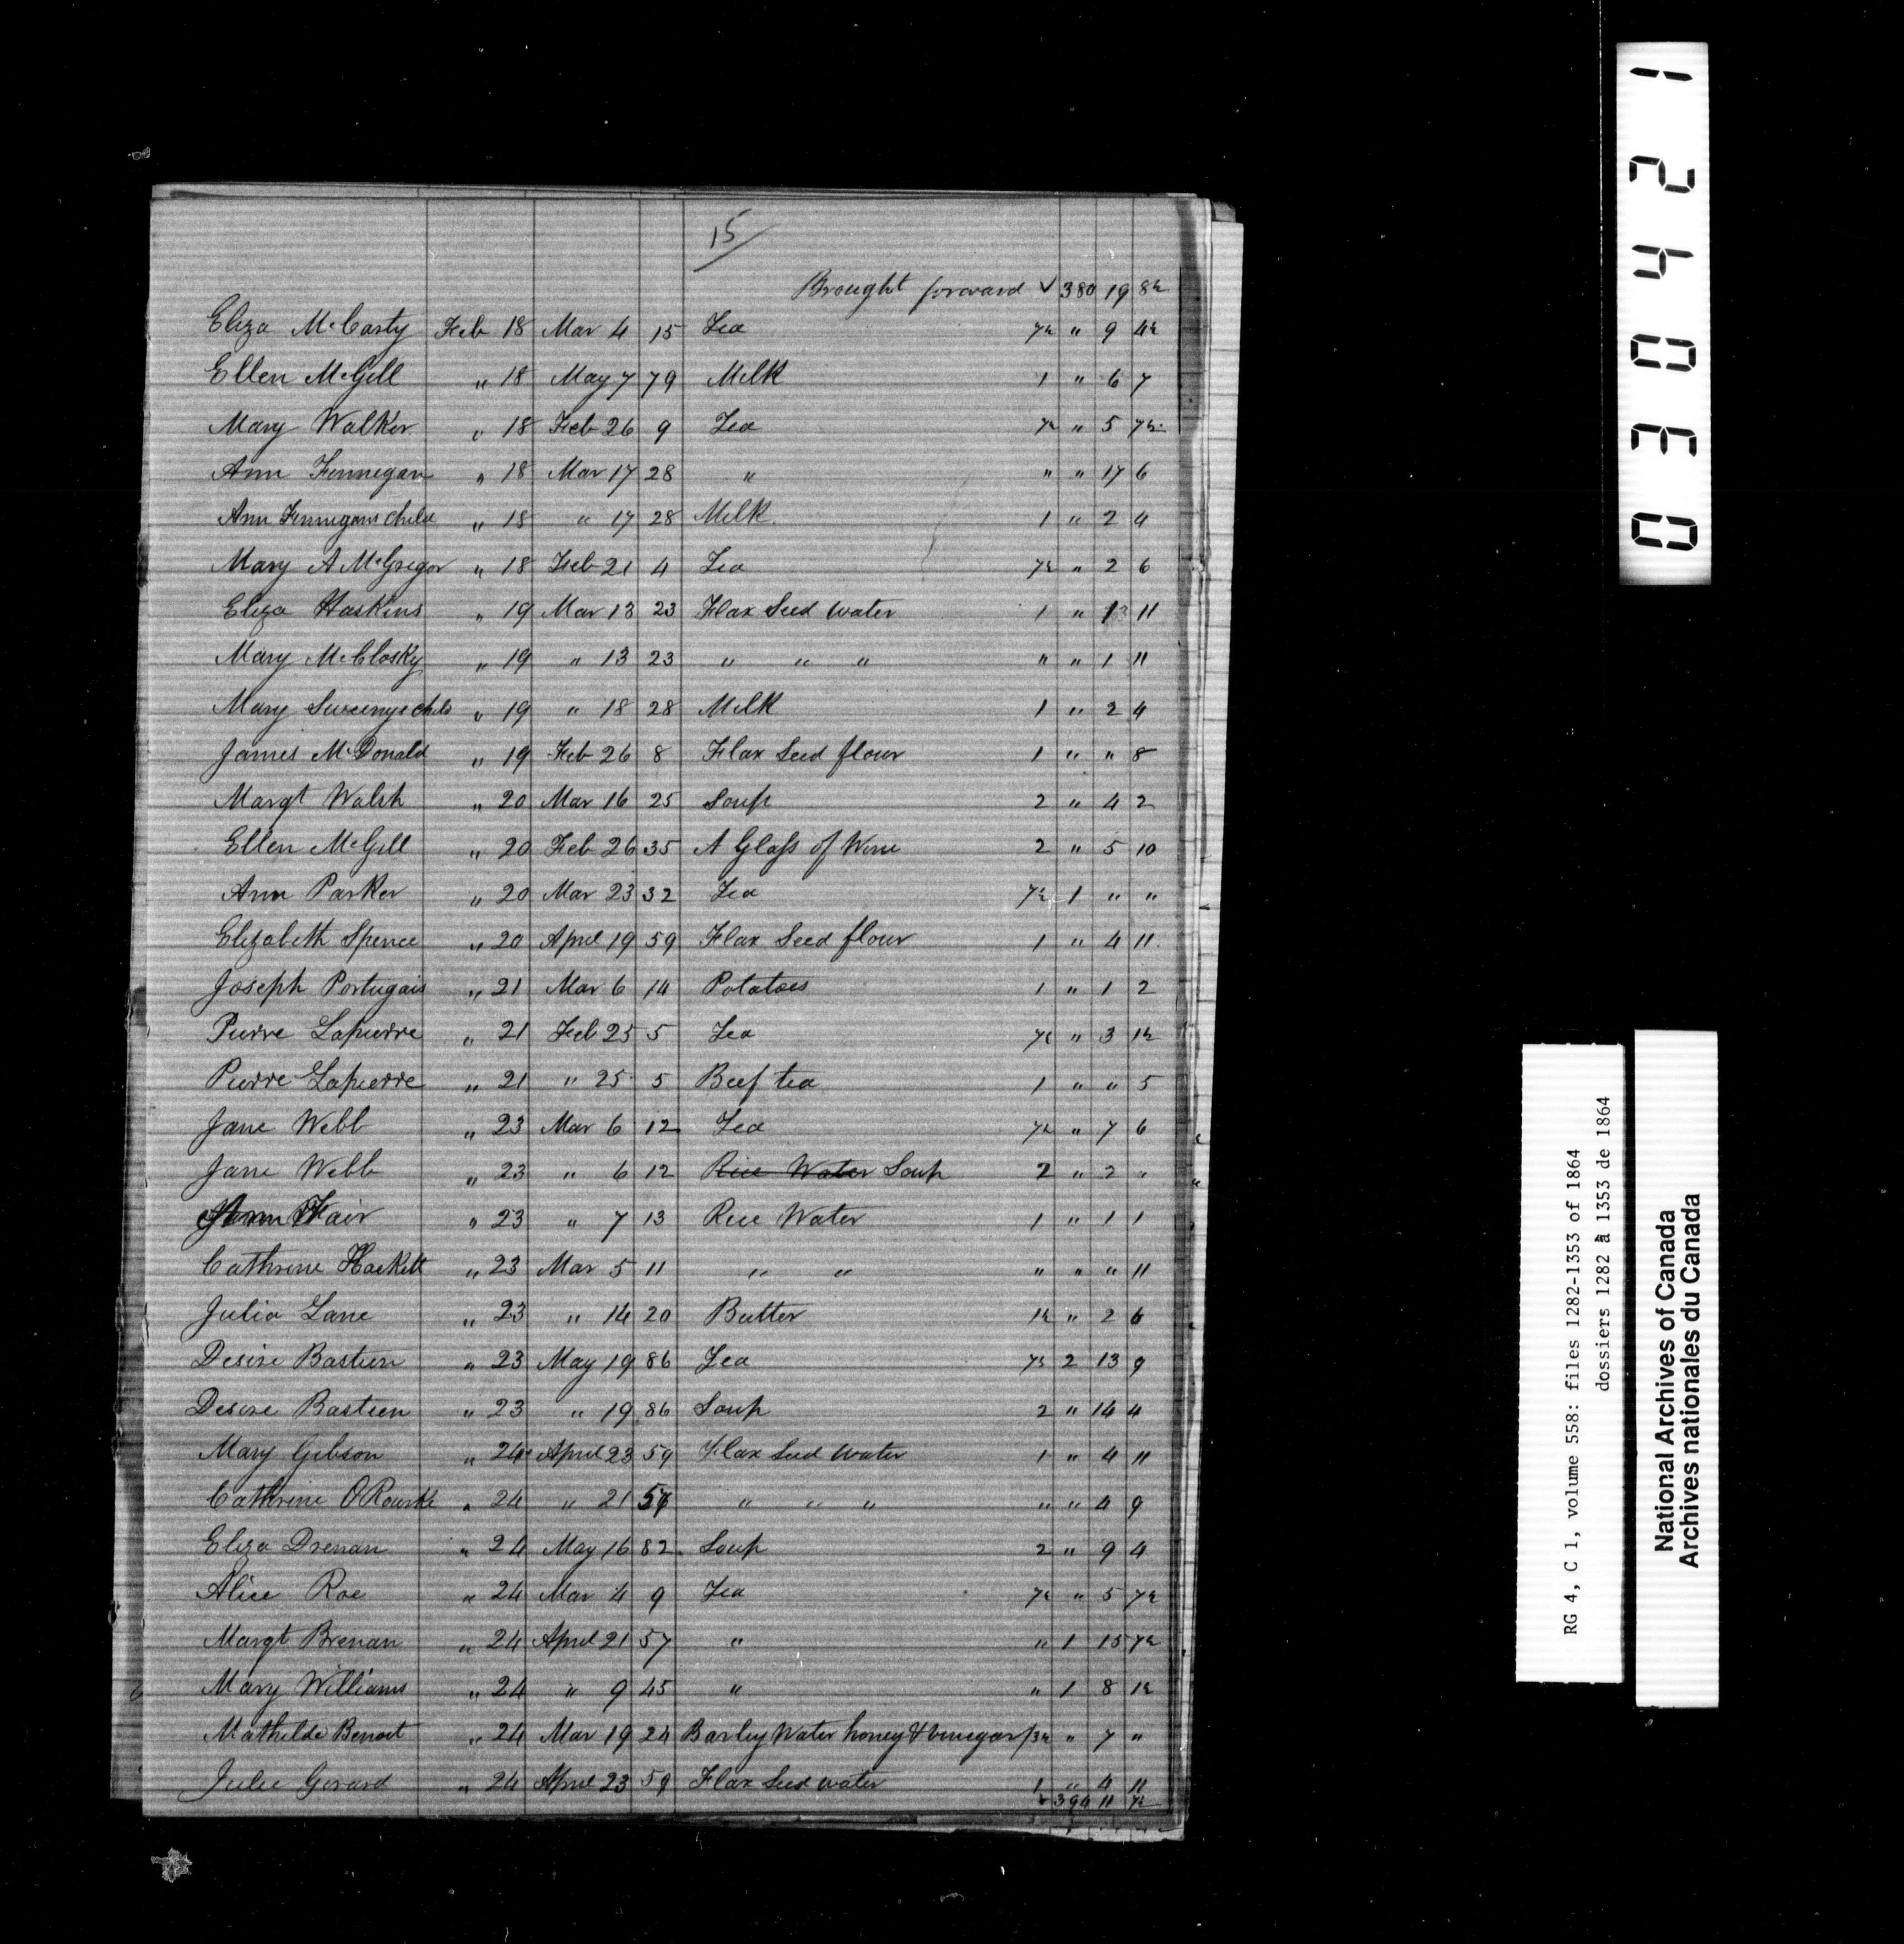 15
Brought forward ✓ 380 19 8½
Eliza McCarty Feb 18 Mar 4 15 Tea 7½ " 9 4½
Ellen McGill " 18 May 7 79 Milk 1 " 6 7
Mary Walker " 18 Feb 26 9 Tea 7½ " 5 7½
Ann Finnegan " 18 Mar 17 28 " " " 17 6
Ann Finnegans child " 18 " 17 28 Milk 1 " 2 4
Mary A McGregor " 18 Feb 21 4 Tea 7½ " 2 6
Eliza Haskins " 19 Mar 13 23 Flax Seed water 1 " 1 11
Mary McClosky " 19 " 13 23 " " " " " 1 11
Mary Sweenys child " 19 " 18 28 Milk 1 " 2 4
James McDonald " 19 Feb 26 8 Flax Seed flour 1 " " 8
Margt Walsh " 20 Mar 16 25 Soup 2 " 4 2
Ellen McGill " 20 Feb 26 35 A Glass of Wine 2 " 5 10
Ann Parker " 20 Mar 23 32 Tea 7½ 1 " "
Elizabeth Spence " 20 April 19 59 Flax Seed flour 1 " 4 11
Joseph Portugais " 21 Mar 6 14 Potatoes 1 " 1 2
Pierre Lapierre " 21 Feb 25 5 Tea 7½ " 3 1½
Pierre Lapierre " 21 " 25 5 Beef tea 1 " " 5
Jane Webb " 23 Mar 6 12 Tea 7½ " 7 6
Jane Webb " 23 " 6 12 Rice Water Soup 2 " 2 "
Ann Fair " 23 " 7 13 Rice Water 1 " 1 1
Cathrine Hackett " 23 Mar 5 11 " " " " " 11
Julia Lane " 23 " 14 20 Butter 1½ " 2 6
Desire Bastien " 23 May 19 86 Tea 7½ 2 13 9
Desire Bastien " 23 " 19 86 Soup 2 " 14 4
Mary Gibson " 24 April 23 59 Flax Seed Water 1 " 4 11
Cathrine O'Rourke " 24 " 21 57 " " " " " 4 9
Eliza Drenan " 24 May 16 82 Soup 2 " 9 4
Alice Roe " 24 Mar 4 9 Tea 7½ " 5 7½
Margt Brenan " 24 April 21 57 " " 1 15 7½
Mary Williams " 24 " 9 45 " " 1 8 1½
Mathilde Benoit " 24 Mar 19 24 Barley Water honey & vinegar 3½ " 7 "
Julie Gerard " 24 April 23 59 Flax Seed water 1 " 4 11
394 11 7½
03042 1
RG 4, C 1, volume 558: files 1282-1353 of 1864
dossiers 1282 à 1353 de 1864
National Archives of Canada
Archives nationales du Canada